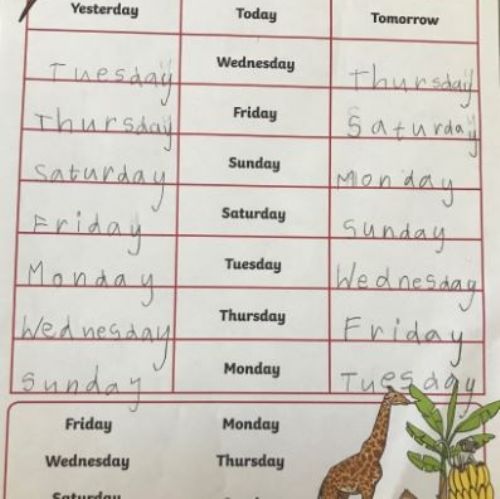 Yesterday Today Tomorrow
Tuesday Wednesday Thursday
Thursday Friday Saturday
Saturday Sunday Monday
Friday Saturday Sunday
Monday Tuesday Wednesday
Wednesday Thursday Friday
Sunday Monday Tuesday
Friday Monday
Wednesday Thursday
Saturday